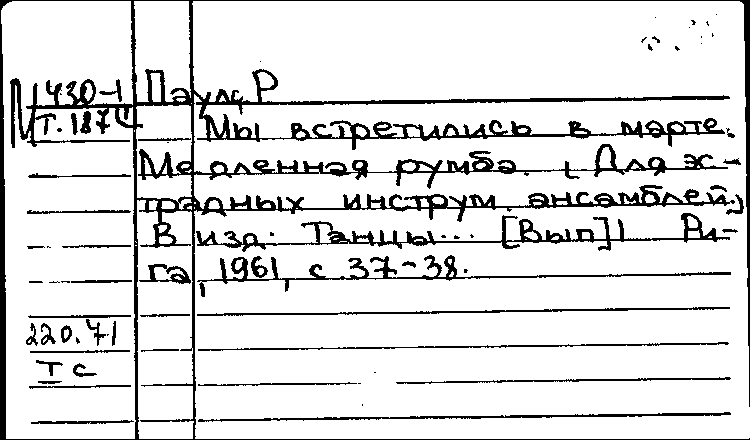 М 430-1 Паулс, Р
Т. 1874 Мы встретились в марте.
Медленная румба. (Для эс-
традных инструм. ансамблей.)
В изд: Танцы... [Вып] 1 Ри-
га, 1961, с 37-38.
220.71
I с